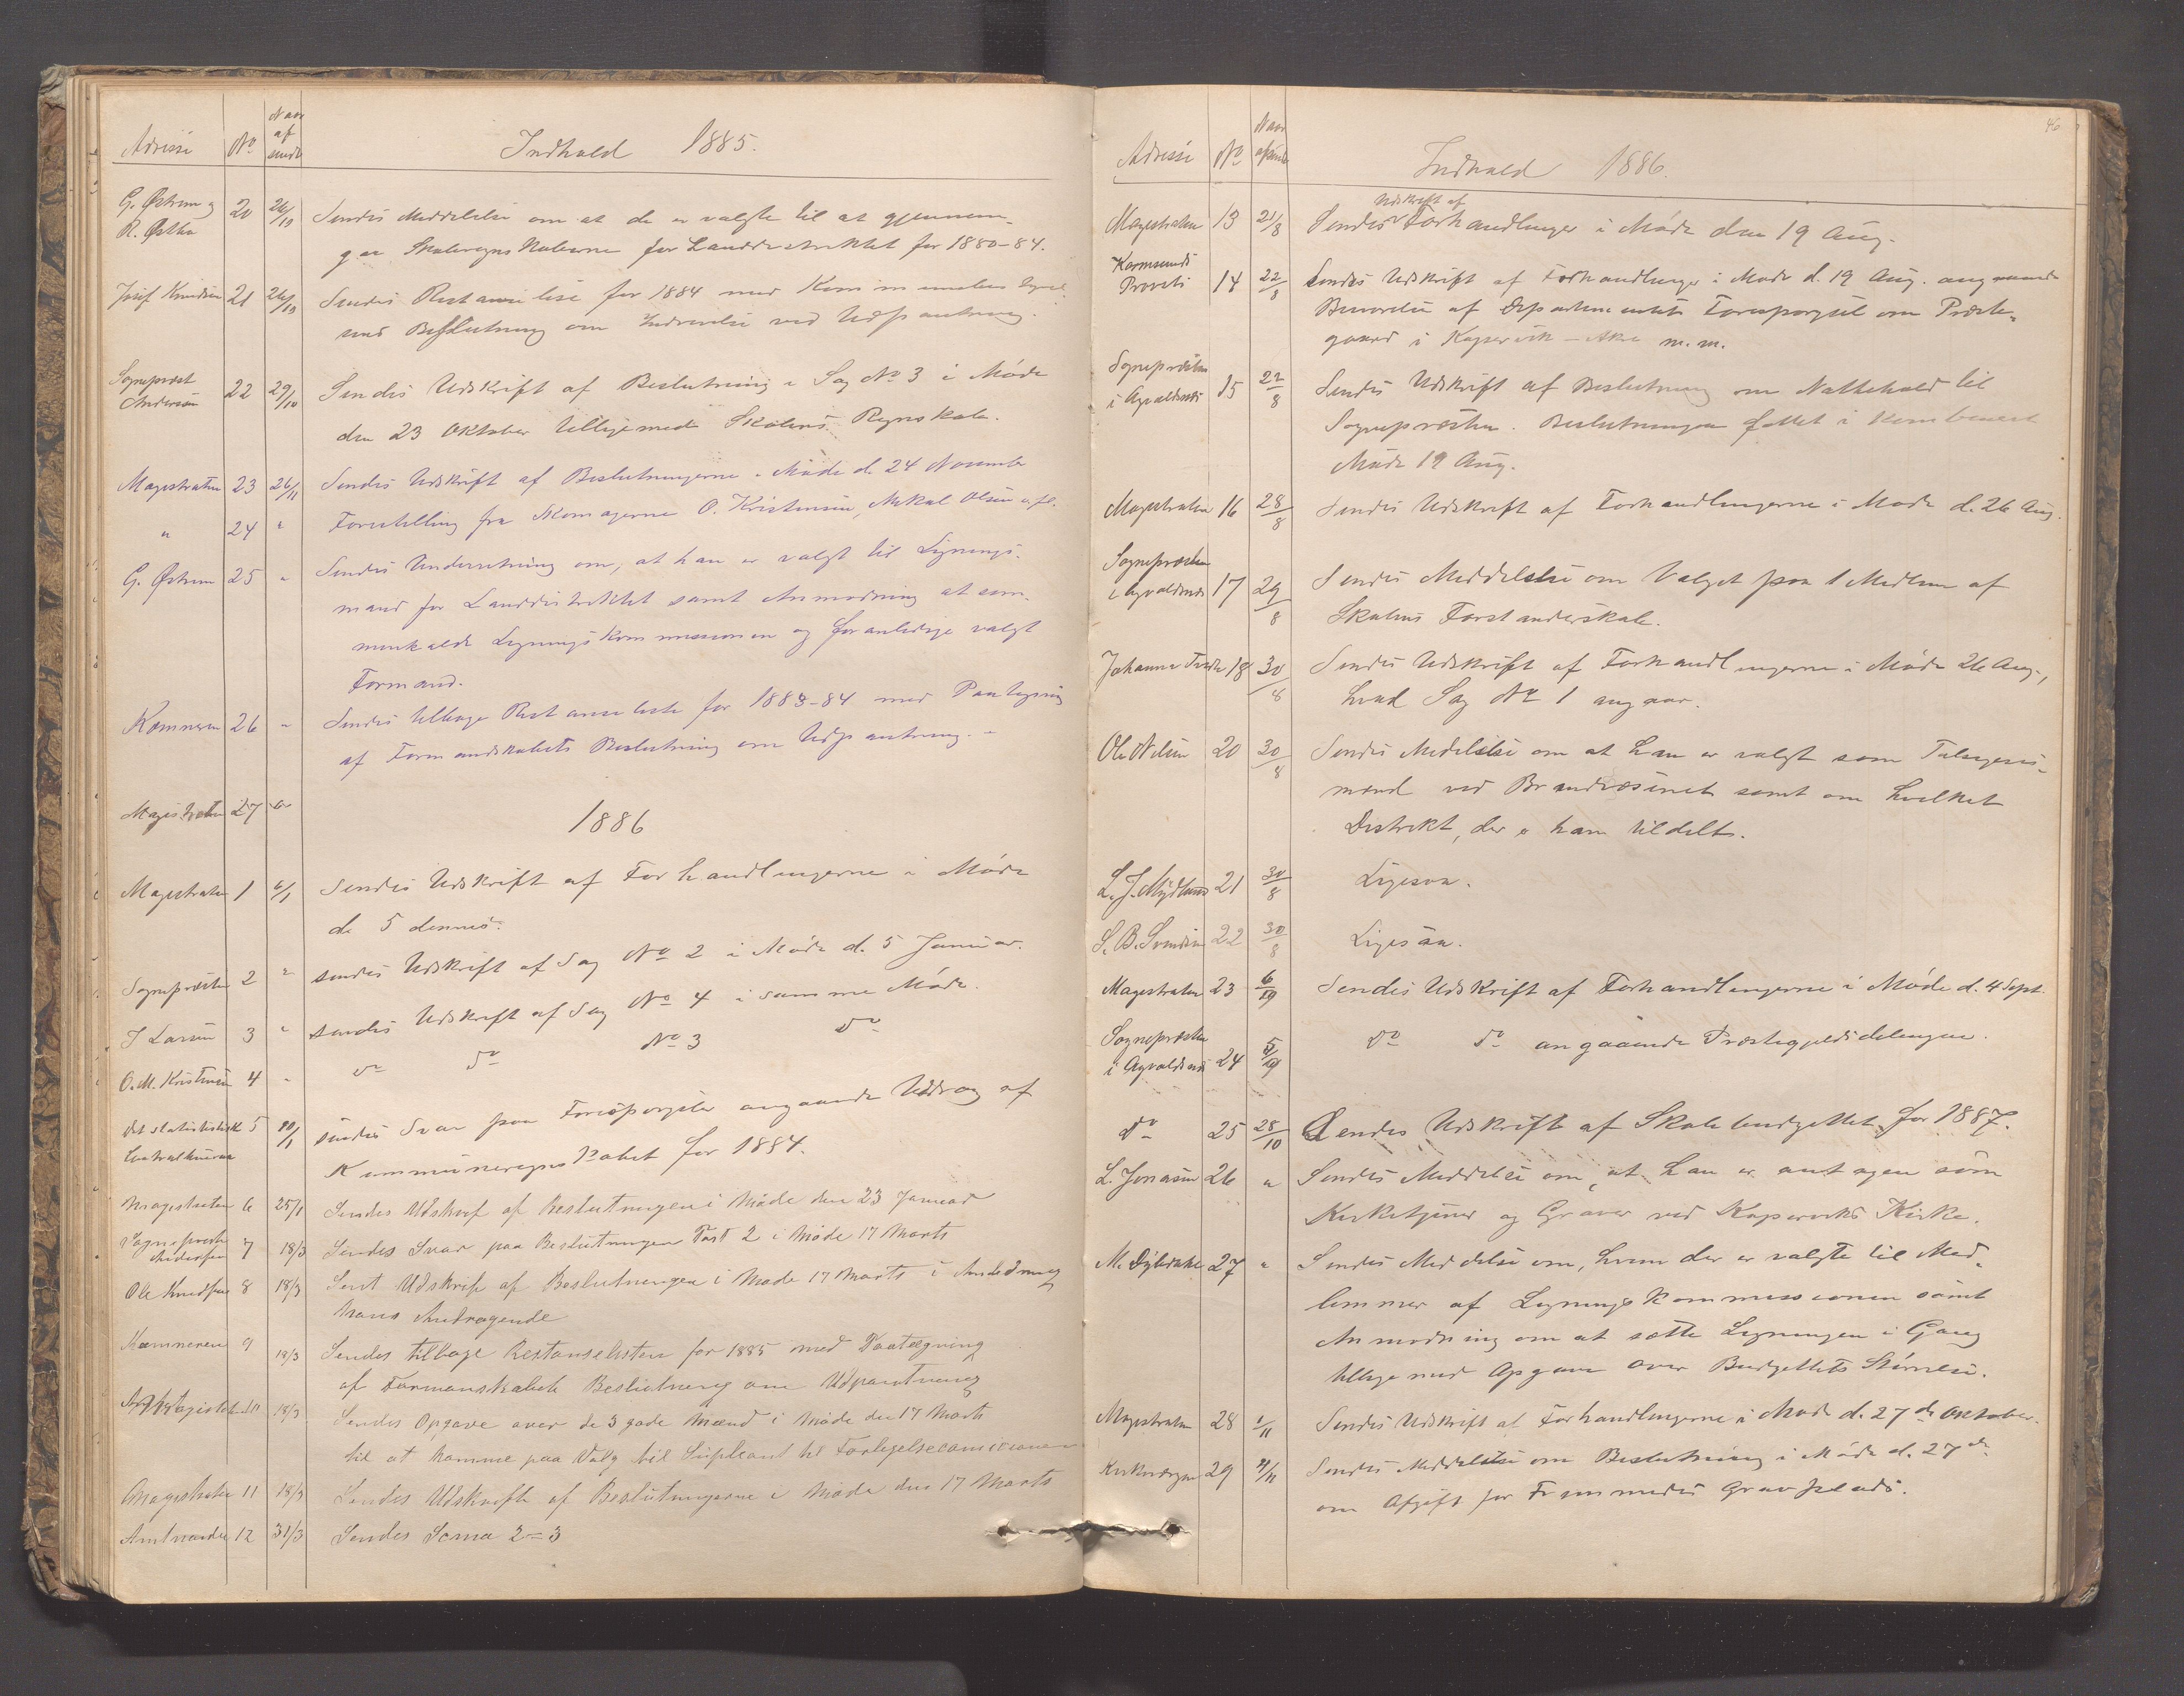 Adresse No Naar af sendt Indhold 1885.
G. Østrem og 20 26/10 Sendes Meddelelse om at de er valgte til at gjennem-
R. Østhu
gaa Skoleregnskaberne for Landdistriktet for 1880-84.
Josef Knudsen 21 26/10 Sendes Restanseliste for 1884 med Kommunebestyrel
sens Beslutning om Inddrivelse ved Udpantning.
Sogneprest 22 29/10 Sendes Udskrift af Beslutning i Sag No 3 i Møde
Andersen
den 23 Oktober tilligemed Skolens Regnskab.
Magistraten 23 26/11 Sendes Udskrift af Beslutningerne i Møde d. 24 November
" 24 " Forestilling fra Skomagerne O. Kristensen, Mikal Olsen o. fl.
G. Østrem 25 " Sendes Underretning om, at han er valgt til Lignings-
mand for Landdistriktet samt Anmodning at sam-
menkalde Ligningskommissionen og foranledige valgt
Formand.
Kæmneren 26 " Sendes tilbage Restanseliste for 1883-84 med Paategning
af Formandskabets Beslutning om Udpantning. -
Magistraten 27 "
1886
Magistraten 1 6/1 Sendes Udskrift af Forhandlingerne i Møde
de 5 dennes.
Sognepresten 2 " sendes Udskrift af Sag No 2 i Møde d. 5 Januar.
J Larsen 3 " sendes Udskrift af Sag No 4 i samme Møde.
O. M. Kristensen 4 " do do No 3 do
Det statistiske 5 10/1 sendes Svar paa Forespørgsler angaaende Uddrag af
Centralbureau
Kommuneregnskabet for 1884.
Magistraten 6 25/1 Sendes Udskrif af Beslutningen i Møde den 23 Januar
Sognepresten 7 18/3 Sendes Svar paa Beslutningen Post 2 i Møde 17 Marts
Andersen
Ole Knudsen 8 18/3 Sent Udskrift af Beslutningen i Møde 17 Marts i Anledning
hans Andragende
Kæmneren 9 18/3 Sendes tilbage Restanselisten for 1885 med Paategning
af Formanskabets Beslutning om Udpantning
Magistraten 10 18/3 Sendes Opgave over de 3 gode Mænd i Møde den 17 Marts
til at komme paa Valg til Supleant til Forligelsecomisionen
Magistraten 11 18/3 Sendes Udskrift af Beslutningerne i Møde den 17 Marts
Amtmanden 12 31/3 Sendes Scma 2=3
46
Adresse No Naar afsendt Indhold 1886.
Udskrift af
Magistraten 13 21/8 Sendes Forhandlinger i Møde den 19 Aug.
Karmsunds
Provsti 14 22/8 Sendes Udskrift af Forhandlinger i Møde d. 19 Aug. angaaende
Besvarelse af Departementets Forespørgsel om Præste-
gaard i Kopervik - Akre m. m.
Sognepræsten
i Agvaldsnes 15 22/8 Sendes Udskrift af Beslutning om Nattehold til
Sognepræsten. Beslutningen fattet i kombineret
Møde 19 Aug.
Magistraten 16 28/8 Sendes Udskrift af Forhandlingerne i Møde d. 26 Aug.
Sognepræsten
i Agvaldsnes 17 29/8 Sendes Meddelelse om Valget paa 1 Medlem af
Skolens Forstanderskab.
Johanne 18 30/8 Sendes Udskrift af Forhandlingerne i Møde 26 Aug.,
hvad Sag No 1 angaar.
Ole Nilsen 20 30/8 Sendes Meddelelse om at han er valgt som Tilsyns-
mand ved Brandvæsenet samt om hvilket
Distrikt, der er ham tildelt.
L. J. Mydland 21 30/8 Ligesaa.
S. B. Svendsen 22 30/8 Ligesaa.
Magistraten 23 6/9 Sendes Udskrift af Forhandlingerne i Møde d. 4 Sept.
Sognepræsten
i Agvaldsnes 24 5/9 do do angaaende Præstegjeldsdelingen.
do 25 28/10 Sendes Udskrift af Skolebudgettet for 1887.
L. Jonasen 26 " Sendes Meddelse om, at han er antagen som
Kirketjener og Graver ved Kopervik Kirke.
M. Dybdahl 27 " Sendes Meddelse om, hvem der er valgte til Med-
lemmer af Ligningskommissionen samt
Anmodning om at sætte Ligningen i Gang
tillige med Opgave over Budgettets Størrelse.
Magistraten 28 1/11 Sendes Udskrift af Forhandlingerne i Møde d. 27de Oktober.
Kirkeværgen 29 4/11 Sendes Meddelelse om Beslutning i Møde d. 27de
om Afgift for Fremmedes Gravplads.